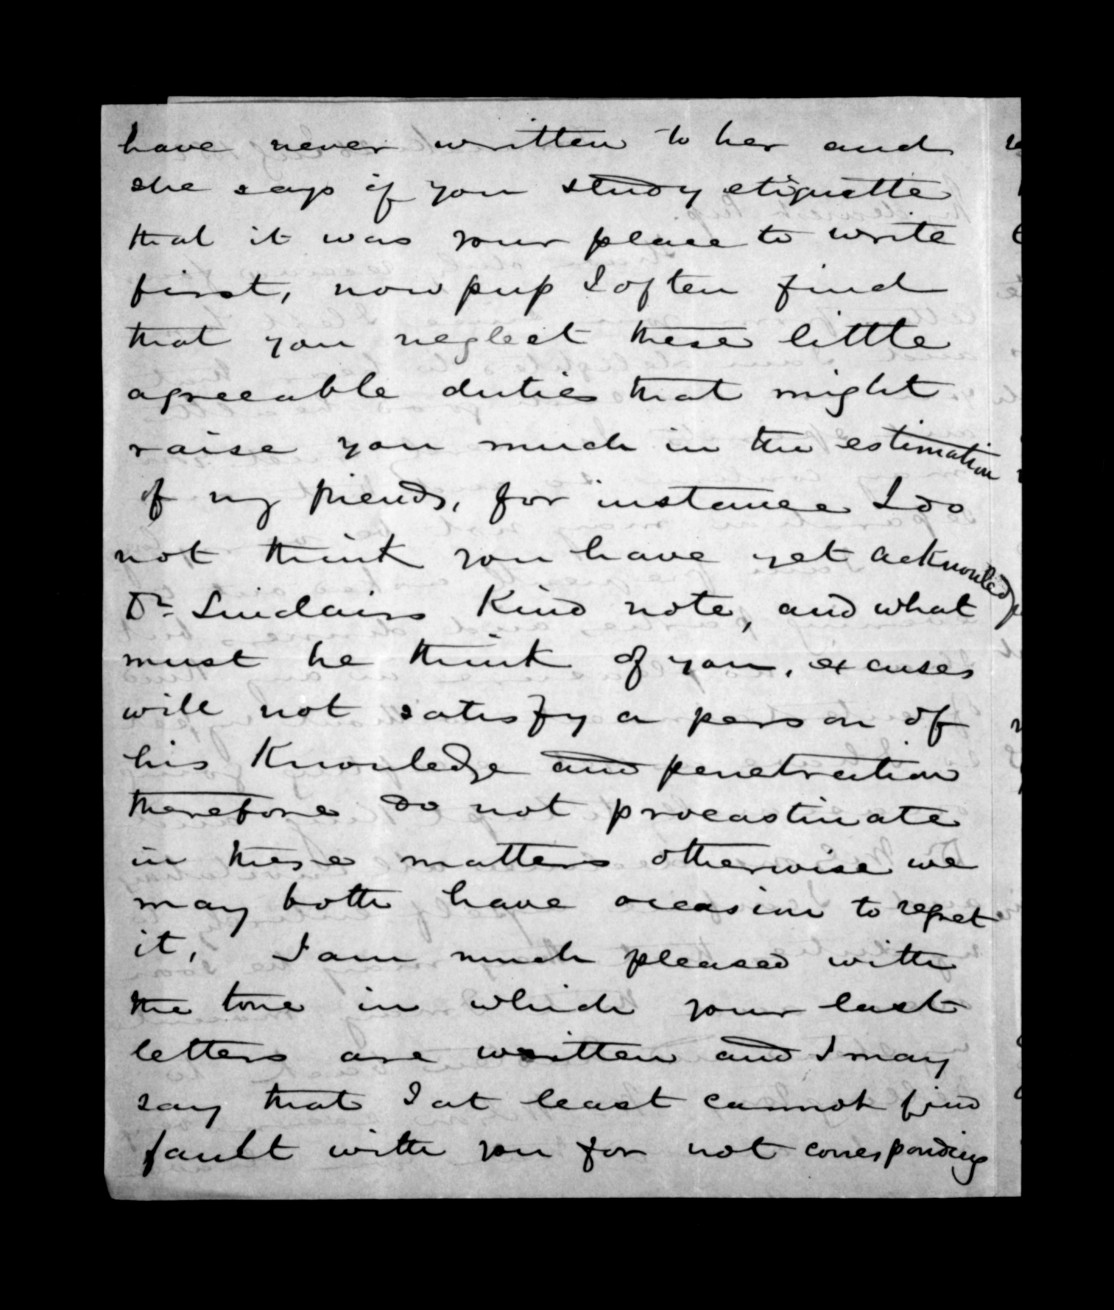 have never written to her and
she says if you study etiquette
that it was your place to write
first, now pup I often find
that you neglect these little
agreeable duties that might
raise you much in the estimation
of my friends, for instance I do
not think you have yet acknowledge
Dr. Sinclairs Kind note, and what
must he think of you, excuses
will not satisfy a person of
his Knowledge and penetration
therefore do not procastinate
in these matters otherwise we
may both have occasion to regret
it, I am much pleased with
the tone in which your last
letters are written and I may
say that I at least cannot find
fault with you for not corresponding